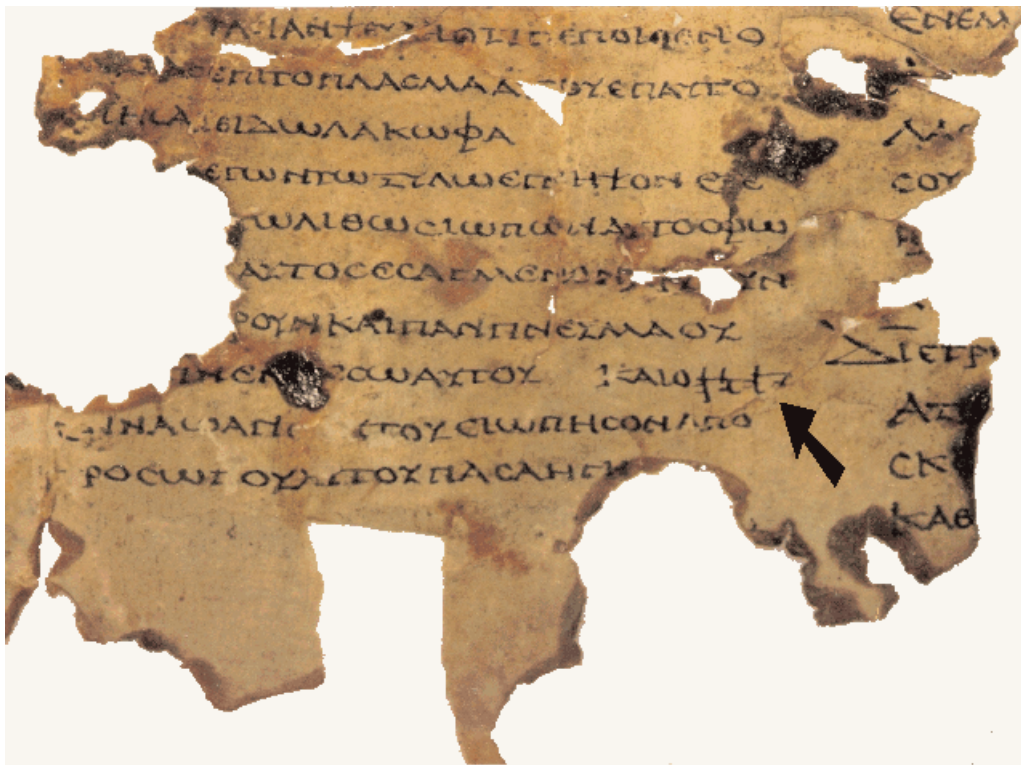 ΕΠΟΙΘΕΝΟ
ΕΠΙΤΟΠΛΑϹΜΑΑ ΟΥΕΠΑΥΤΟ
ΕΙΔΩΛΑΚΩΦΑ
ΕΓΩΝΤΩΞΥΛΩΕΓΝΗΨΟΝΕΞΕ
ΤΩΛΙΘΩϹΙΩΠΩΝΑΥΤΟΦΩ
ΑΥΤΟϹΕϹΑΓΜΕΝΟΝ ΥΝ
ΡΟΥΝΚΑΙΠΑΝΠΝΕΥΜΑΟΥ
ΩΑΥΤΟΥ ΚΑΙΟ𐤉𐤄𐤅𐤄
ΝΑΩΑΓΙ ΥΤΟΥϹΙΩΠΗϹΟΝΑΠΟ
ΡΟϹΩΠΟΥΑΥΤΟΥΠΑϹΑΗΓΗ
ΕΝΕΜ
ΛΑ
ϹΟΥ
ΔΙΕΤΡ
ΑΥ
ϹΚ
ΚΑΘ